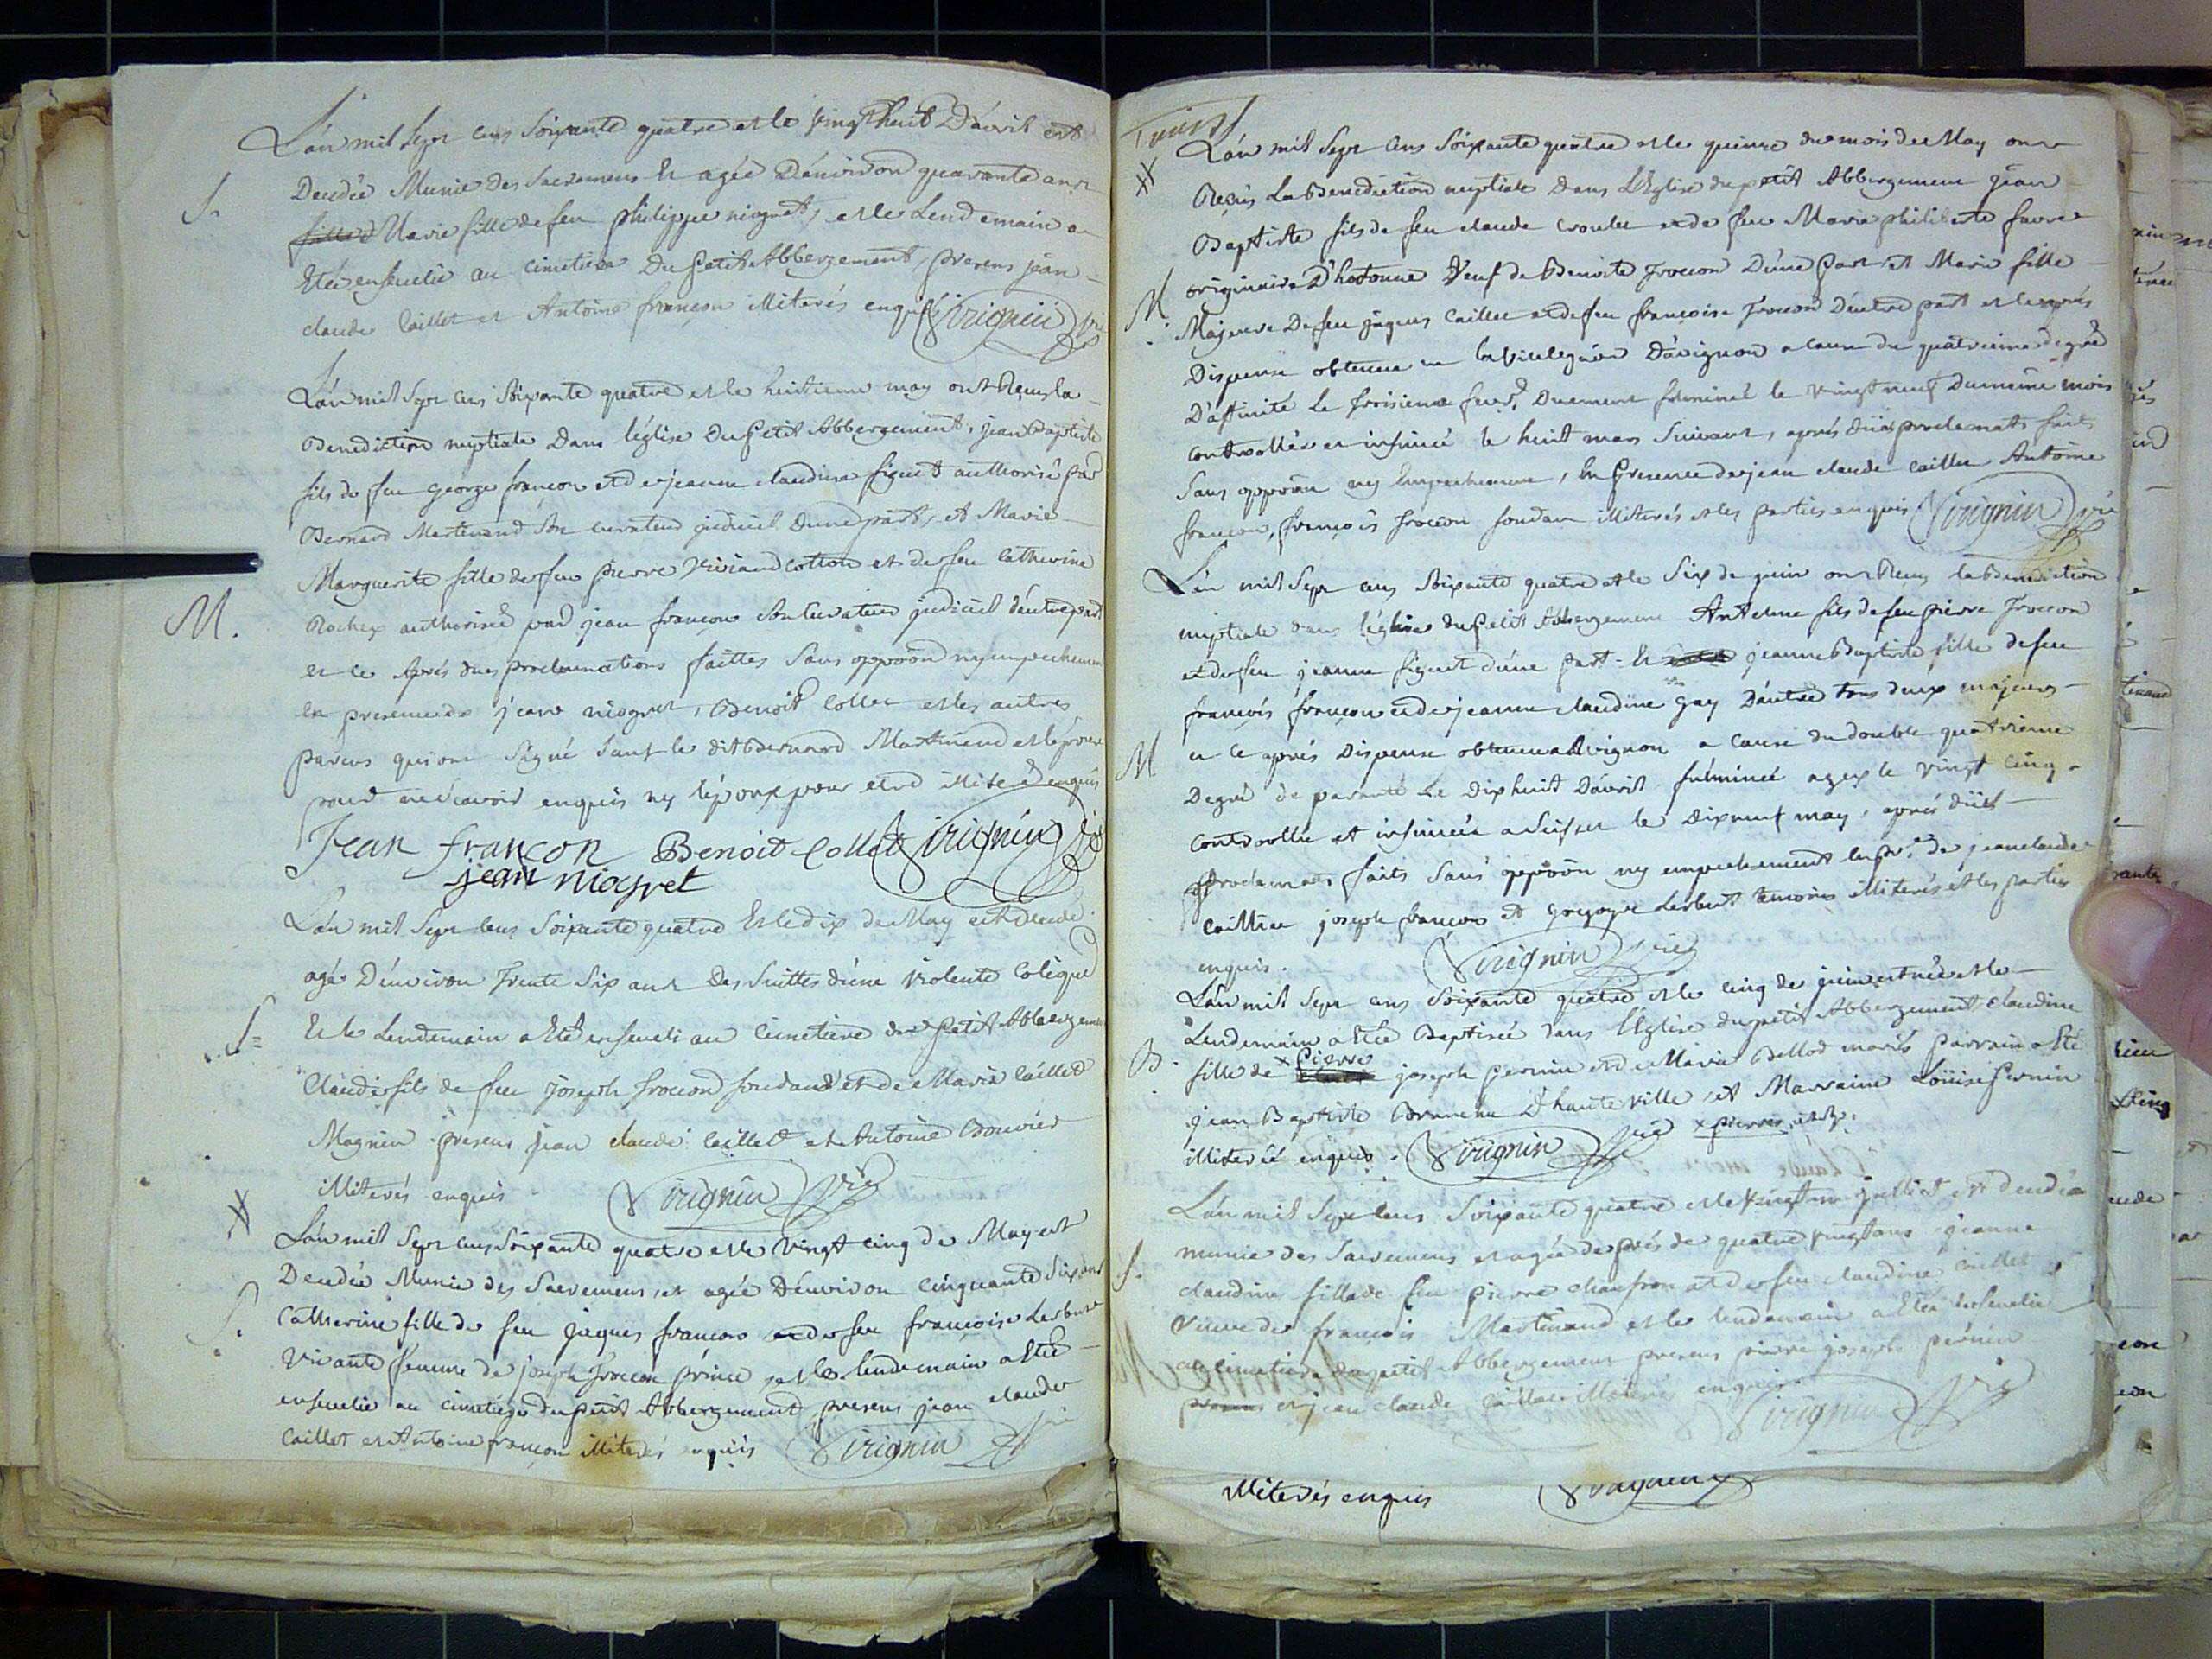 L'an mil sept cens soixante quatre et le vingt huit D'avril est
S.
Decedée Munie des Sacremens Et agée D'environ quarante ans
fille d Marie fille de feu philippe niogret, et le Lendemain a
Eté ensevelie au cimetiere Du Petit Abbergement, presens jean
claude Caillet et Antoine françon illiterés enquis Virignin vic
L'an mil sept cens soixante quatre et le huitieme may ont Reçu la
Benediction nuptiale Dans l'église Du Petit Abbergement, jean Baptiste
fils de feu George françon et de jeanne claudine figuet authorisé par
Bernard Martinand son curateur judiciel D'une part, et Marie
Marguerite fille de feu pierre Viviand Cotton et de feu Catherine
M.
Rochex authorisée par jean françon Son Curateur judiciel d'autre part
et ce Aprés dues proclamations faittes Sans oppöon ny empechement
en presence de jean niogret, Benoit Collet et les autres
parens qui ont Signé Sauf le dit Bernard Martinand et l'épouse
pour ne scavoir enquis ny l'époux pour etre illiteré enquis
Jean françon Benoit Collet Virignin vic
jean niogret
L'an mil Sept cens Soixante quatre Et le dix de May est decedé
agé D'environ Trente Six ans Des Suittes d'une violente Colique
S=
Et le Lendemain a Eté enseveli au Cimetiere du Petit Abbergement
Claude fils de feu joseph Trocon soudan et de Marie Caillet
Magnin presens jean claude Caillet et Antoine Bouvier
illiterés enquis Virignin vic
L'an mil Sept cens Soixante quatre et le vingt cinq de May est
Decedée Munie des Sacremens, et agée D'environ cinquante Six ans
S.
Catherine fille de feu jaques françon et de feu françoise Lerbut
Vivante femme de joseph Trocon prince, et le lendemain a Eté
ensevelie au cimetiere du petit Abbergement presens jean claude
Caillet et Antoine françon illiterés enquis Virignin vic
L'an mil Sept Cens Soixante quatre et le quinze du mois de May ont
Reçus La Benediction nuptiale Dans L'Eglise du petit Abbergement jean
Baptiste fils de feu claude et de feu Marie philiberte favre
originaire D'hotonne Veuf de Benoite Trocon D'une Part et Marie fille
M.
Majeure De feu jaques Caillet et de feu françoise Trocon D'autre part et ce aprés
Dispense obtenue en la Vicelegation D'avignon a cause du quatrieme degré
D'afinité Le troisieme Duement fulminée le vingt neuf Du meme mois
controllée et insinuée le huit mars Suivant, aprés düs proclamats faits
Sans oppöon ny Empechement, En Presence de jean claude caillet Antoine
françon, françois Trocon soudan illiterés et les parties enquis Virignin vic
L'an mil Sept cens Soixante quatre et le Six de juin ont Reçu la Benediction
nuptiale dans l'église du Petit Abbergement Antelme fils de feu pierre Trocon
et de feu jeanne figuet d'une part Et jeanne Baptiste fille de feu
françois françon et de jeanne claudine Gay D'autre tous deux majeurs
M
et ce aprés Dispense obtenue a Avignon a Cause du double quatrieme
Degré de parenté Le Dixhuit D'avril fulminée a gex le vingt cinq
Controllée et insinuée a Seissel le Dixneuf may, aprés düs
Proclamats faits Sans oppöon ny empechement en pr.ce de jean claude
Caillet joseph françon et Gregoyre Lerbut temoins illiterés et les parties
enquis. Virignin vic
L'an mil Sept cens Soixante quatre et le cinq de juin est née et le
Lendemain a Eté Baptisée dans L'Eglise du petit Abbergement claudine
B.
fille de x Pierre joseph Pernin et de Marie Ballod mariés parrain a Eté
jean Baptiste D'hauteville, et Marraine Loüise Pernin
illiterée enquise. Virignin vic x pierre
L'an mil Sept cens Soixante quatre et le juilliet est decedée
munie des Sacremens et agée de prés de quatre vingt ans jeanne
S.
claudine fille de feu pierre chanfron et de feu claudine Caillet
Veuve de françois Martinand et le lendemain a Eté Ensevelie
au cimetiere du petit Abbergement presens pierre joseph pernin
et jean claude Caillet illiterés enquis Virignin vic
illiterés enquis Virignin